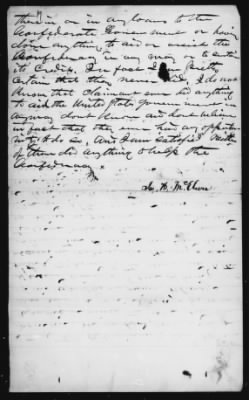 therein or in any loans to the
Confederate Government or having
done anything to aid or assist the
Confederacy in any way to
its Credit. In fact I am pretty
certain that they never did, I do not
know that Claimant ever did anything
to aid the United States government in
anyway dont know and dont believe
in fact that they ever had any opportu
to do so, and I am satisfied neither
of them did anything to help the
Confederacy